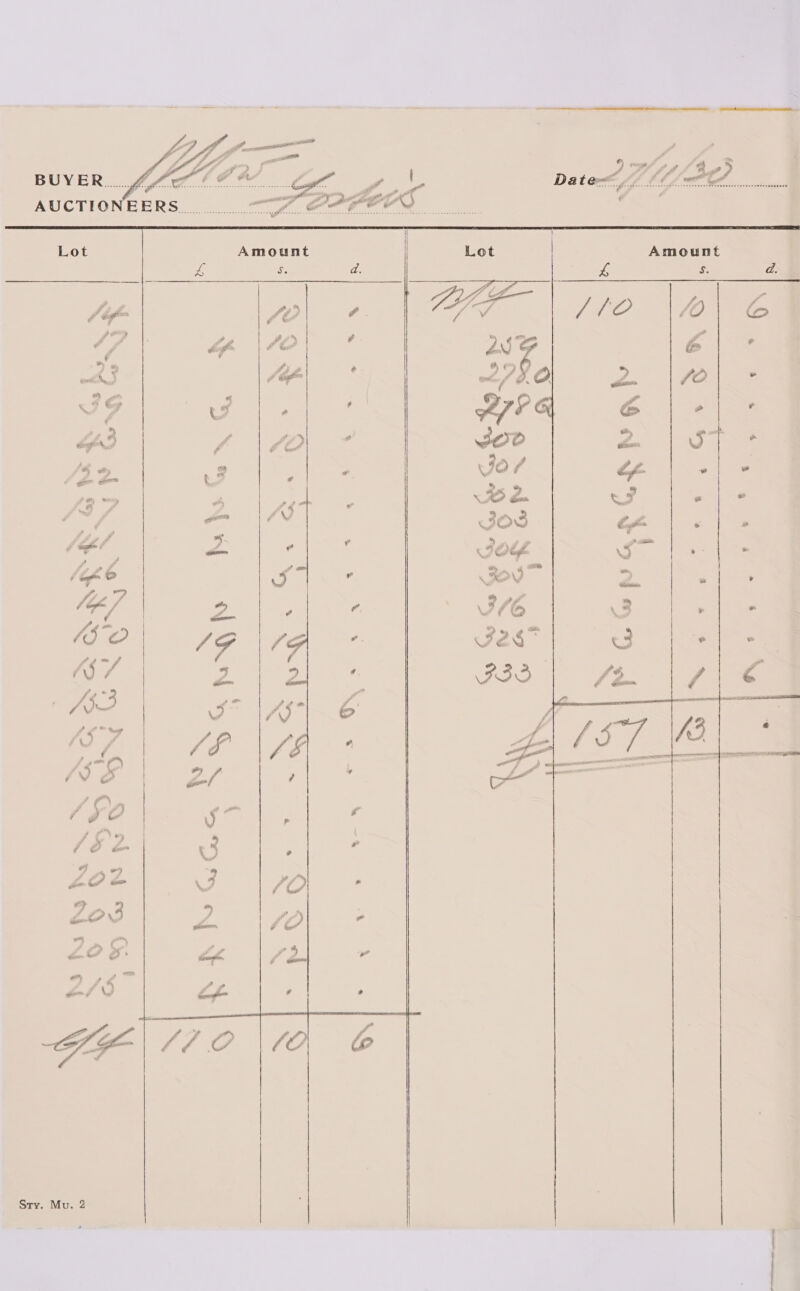 BUYER
Date 27/11/30
AUCTIONEERS
Lot Amount Lot Amount
£ s. d. £ s. d.
14 10 -
17 4 10 -
23 14 -
39 3 - -
43 1 10 -
122 3 - -
137 2 15 -
141 2 - -
146 5 -
147 2 - -
150 19 19 -
151 2 2 -
153 5 15 6
157 18 18 -
158 21 - -
180 5 - -
182 3 - -
202 3 10 -
203 2 10 -
208 4 12 -
215 4 - -
110 10 6
110 10 6
6 -
2 10 -
6 - -
300 2 5 -
301 4 - -
302 3 - -
303 4 - -
304 5 - -
305 2 - -
316 3 - -
325 3 - -
333 12 1 6
£157 13 -
Sty. Mu. 2